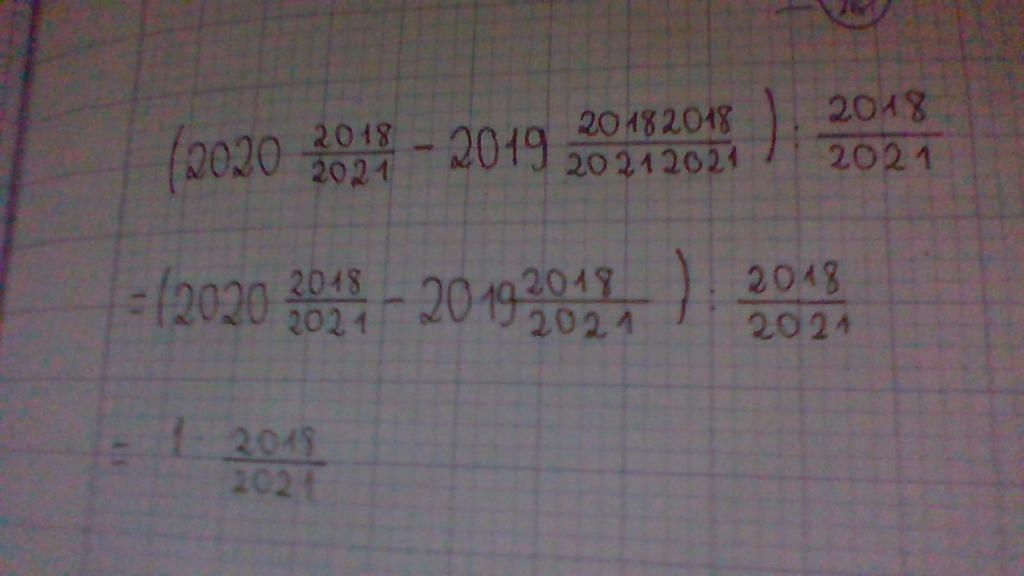 (2020 2018/2021 - 2019 20182018/20212021) : 2018/2021
=(2020 2018/2021 - 2019 2018/2021) : 2018/2021
= 1 · 2018/2021